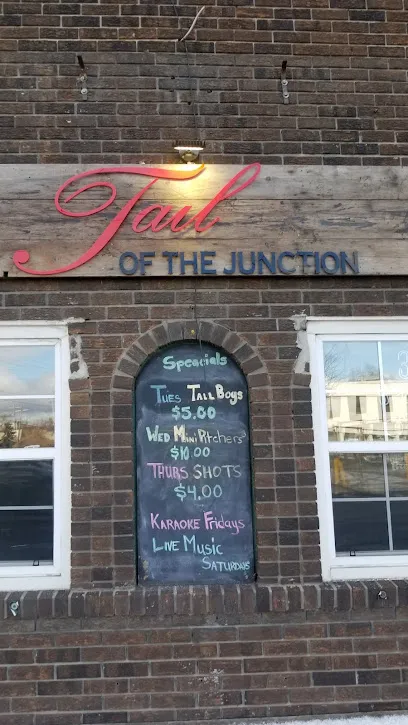 Tail
OF THE JUNCTION
Specials
TUES TALL BOYS
$5.00
WED MINI PITCHERS
$10.00
THURS SHOTS
$4.00
KARAOKE FRIDAYS
LIVE MUSIC
SATURDAYS